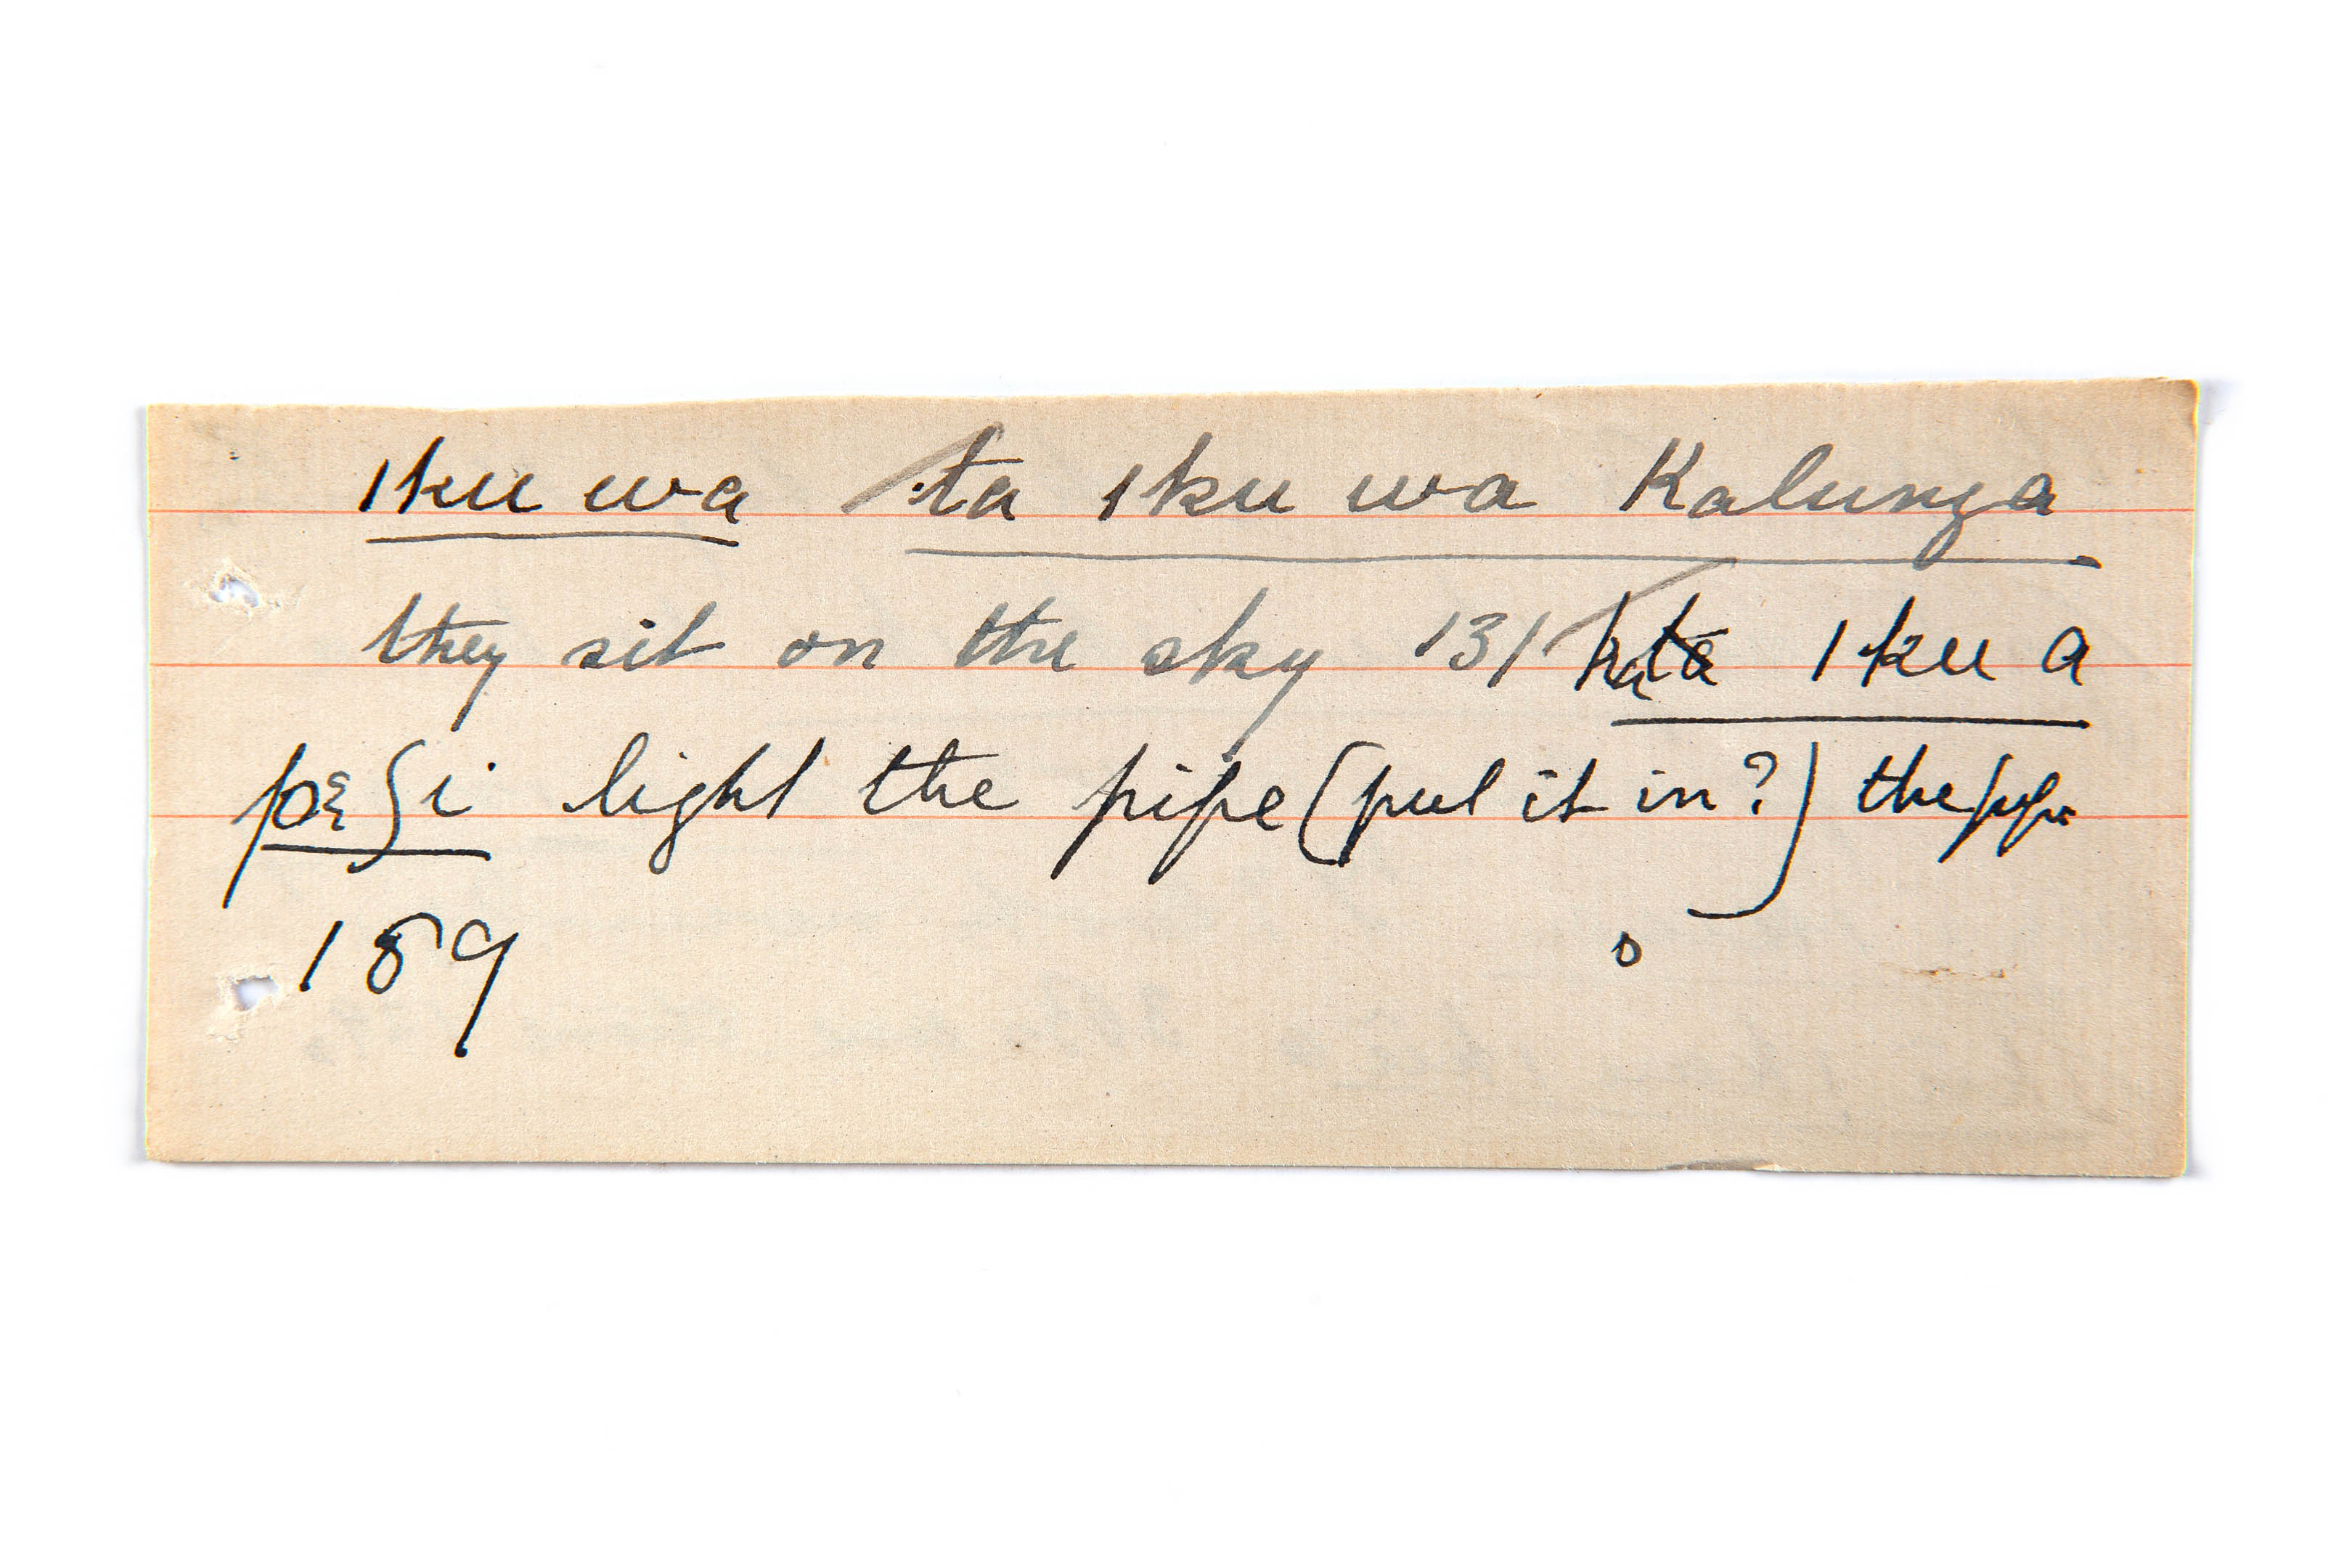 ikuwa ta ikuwa Kalunga
they sit on the sky 131 iku a
pɛʃi light the pipe (put it in?) the pipe
189